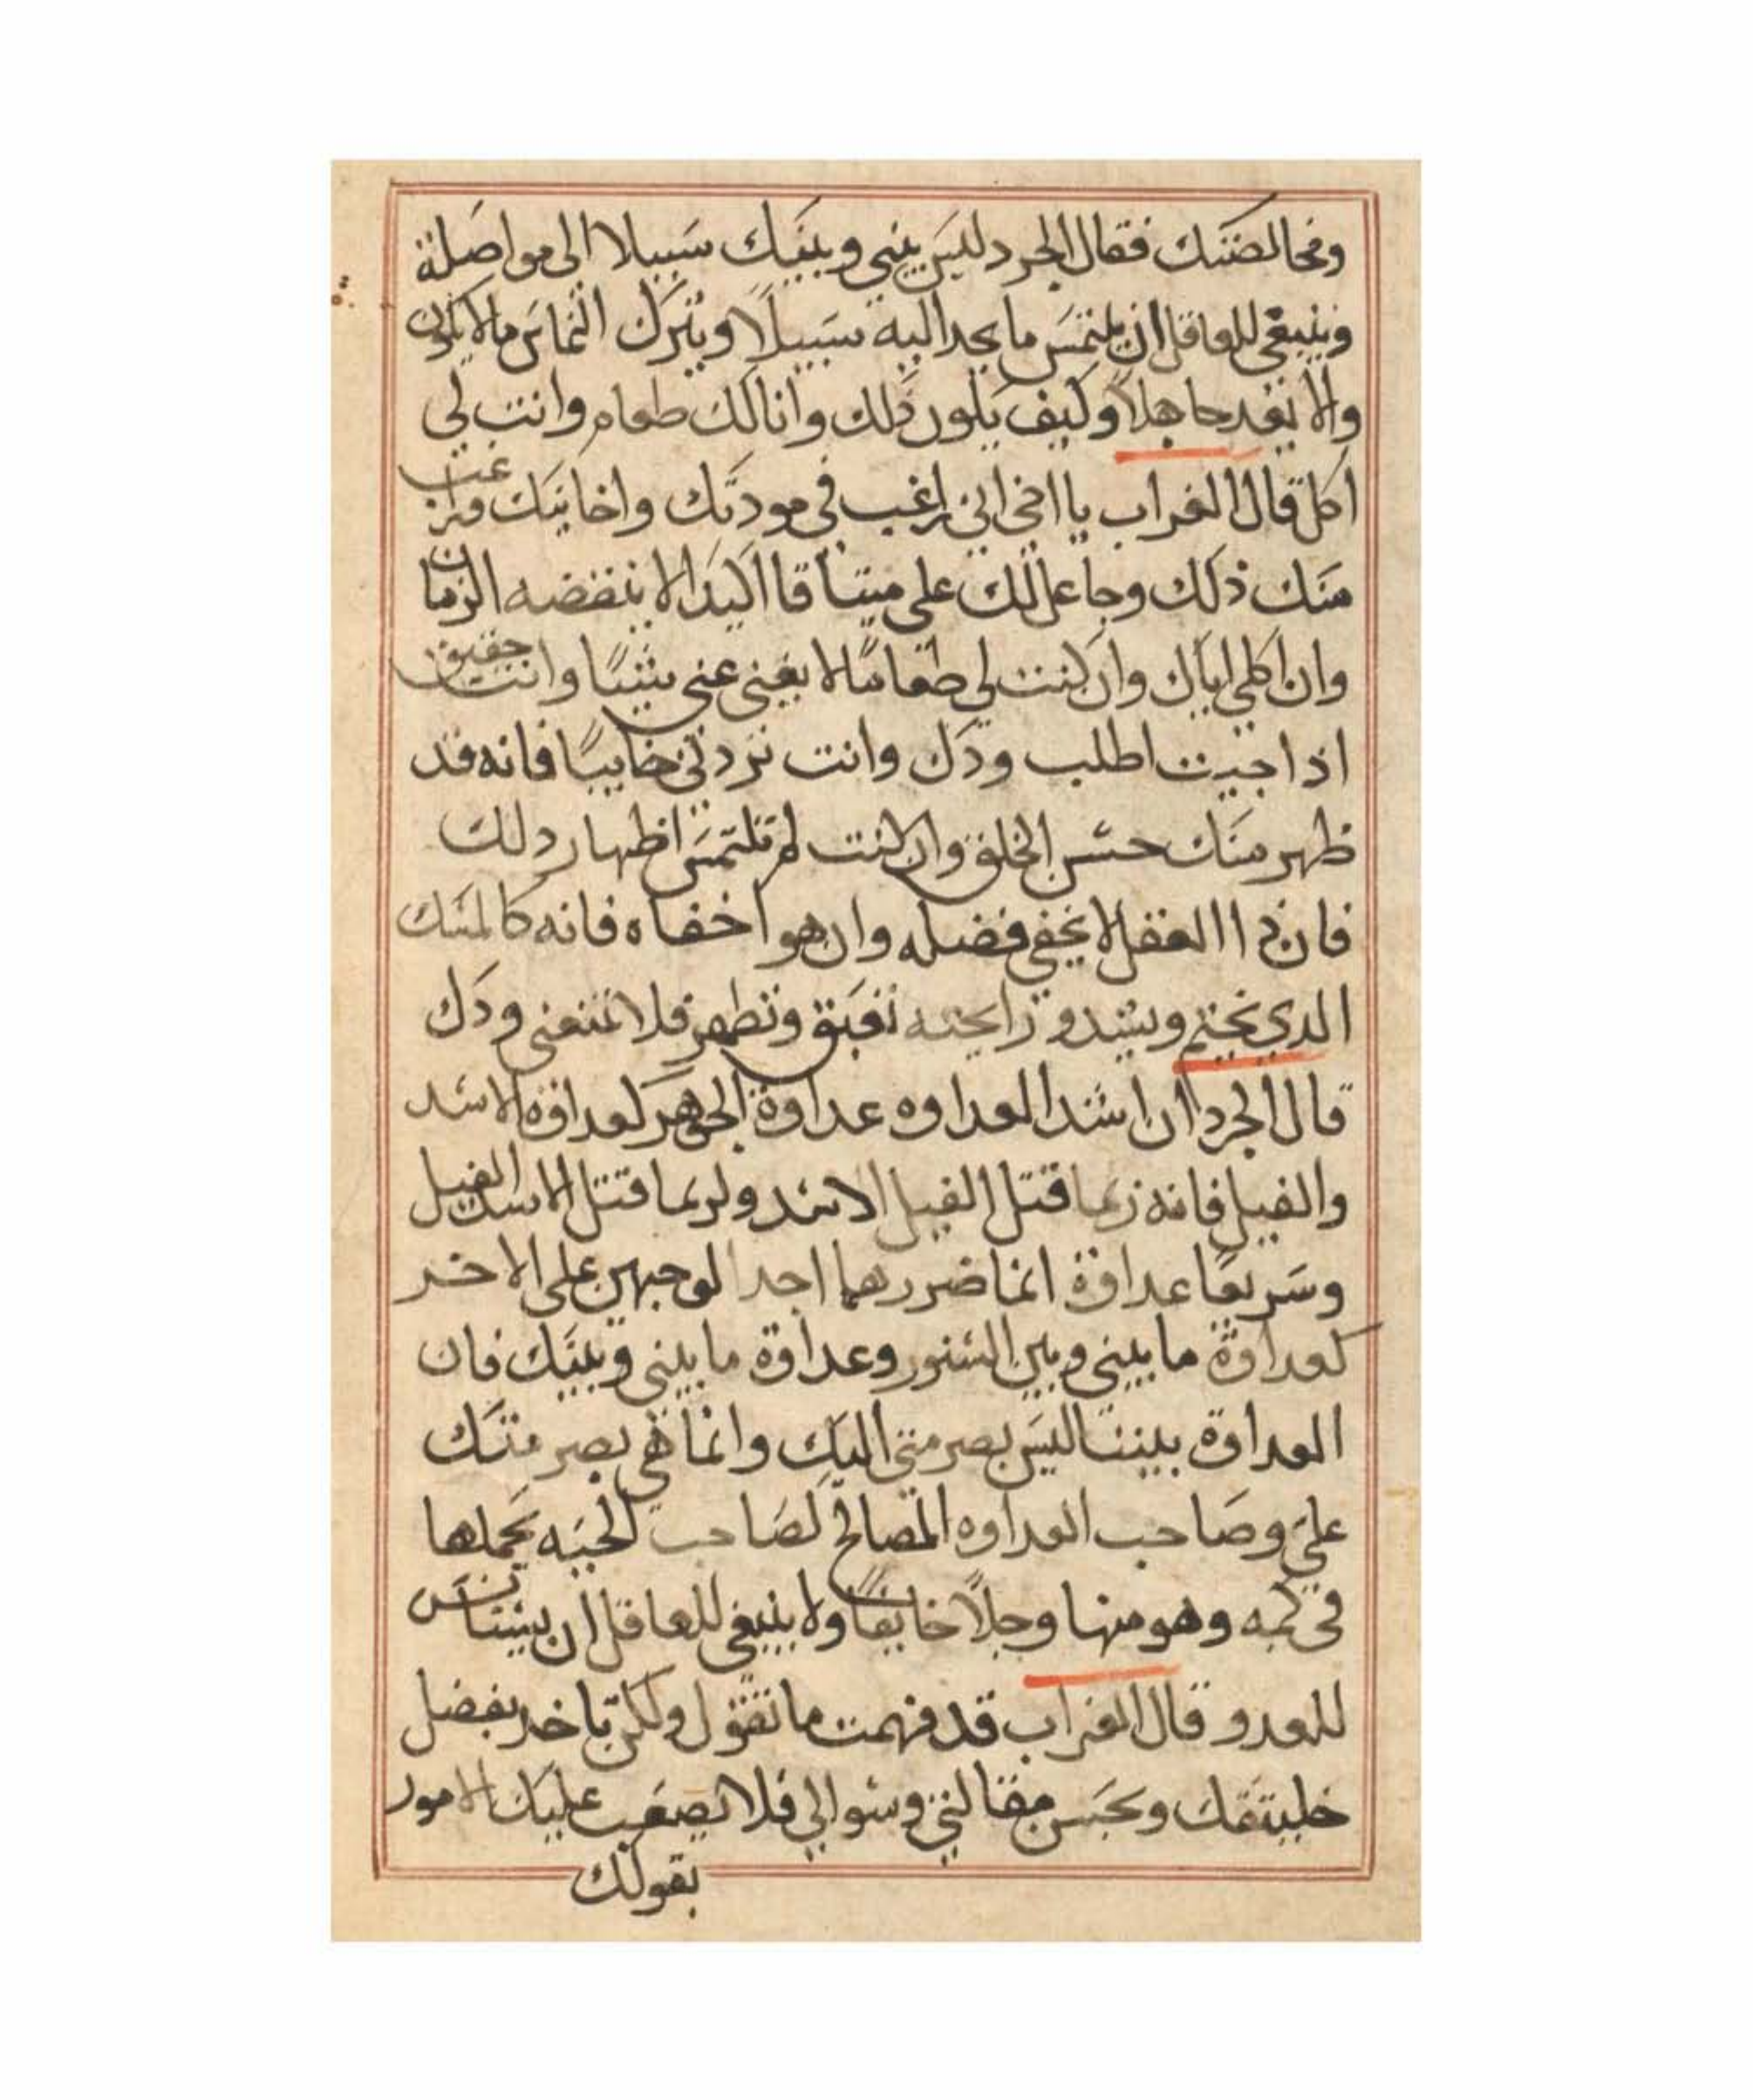 ومخالصتك فقال الجرد ليس بيني وبينك سبيلا الى مواصلة
وينبغي للعاقل ان يلتمس ما يجد اليه سبيلا ويترك التماس ما لا يكون
والا يعد جاهلا وكيف يكون ذلك وانا لك طعام وانت لي
اكل قال الغراب يا اخي اني راغب في مودتك واخايتك وراغب
منك ذلك وجاعل لك علي ميتاقا اكيدا لا ينقضه الزمان
وان اكلي اياك وان كنت لي طعاما لا يغني عني شيئا وانت حقيق
اذا جيت اطلب ودك وانت تردني خايبا فانه قد
ظهر منك حسن الخلق وان كنت لم تلتمس اظهار دلك
فان ذا العقل لا يخفي فضله وان هو اخفاه فانه كالمسك
الدي يختم ويشد و رايحته تعبق وتظهر فلا تمنعني ودك
قال الجرد ان اشد العداوه عداوة الجوهر كعداوة الاسد
والفيل فانه ربما قتل الفيل الاسد ولربما قتل الاسد الفيل
وسريعا عداوة انما ضررهما احد الوجهين على الاخر
كعداوة ما بيني وبين السنور وعداوة ما بيني وبينك فان
العداوة بيننا ليس بضر مني اليك وانما هي بضر منك
علي وصاحب العداوه المصالح كصاحب الحيه يحملها
في كمه وهو منها وجلا خايفا ولا ينبغي للعاقل ان يستانس
للعدو قال الغراب قد فهمت ما تقول ولكن تاخد بفضل
خليقتك وبحسن مقالتي وسوالي فلا تصعب عليك الامور
بقولك